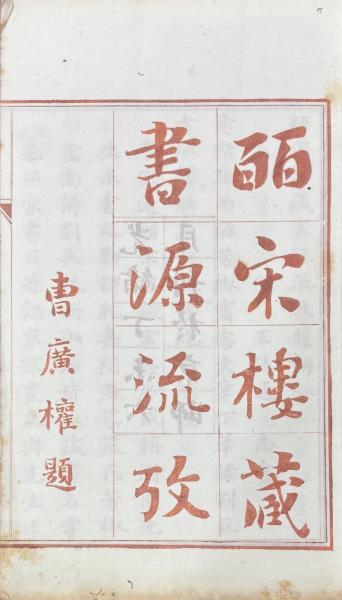 皕宋樓藏
書源流攷
曹廣權題